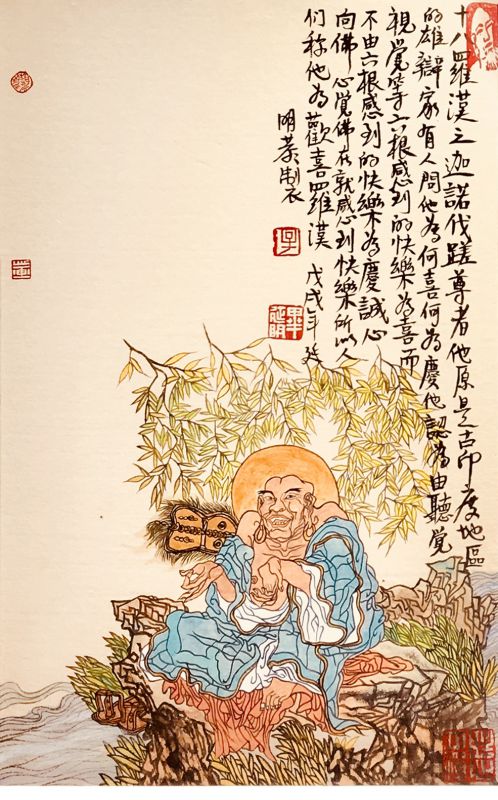 十八羅漢之迦諾伐蹉尊者他原是古印度地區
的雄辯家有人問他為何喜何為慶他認為由聽覺
視覺等六根感到的快樂為喜而
不由六根感到的快樂為慶誠心
向佛心覺佛在就感到快樂所以人
们称他為歡喜羅漢 戊戌年延
明恭製
畢延明